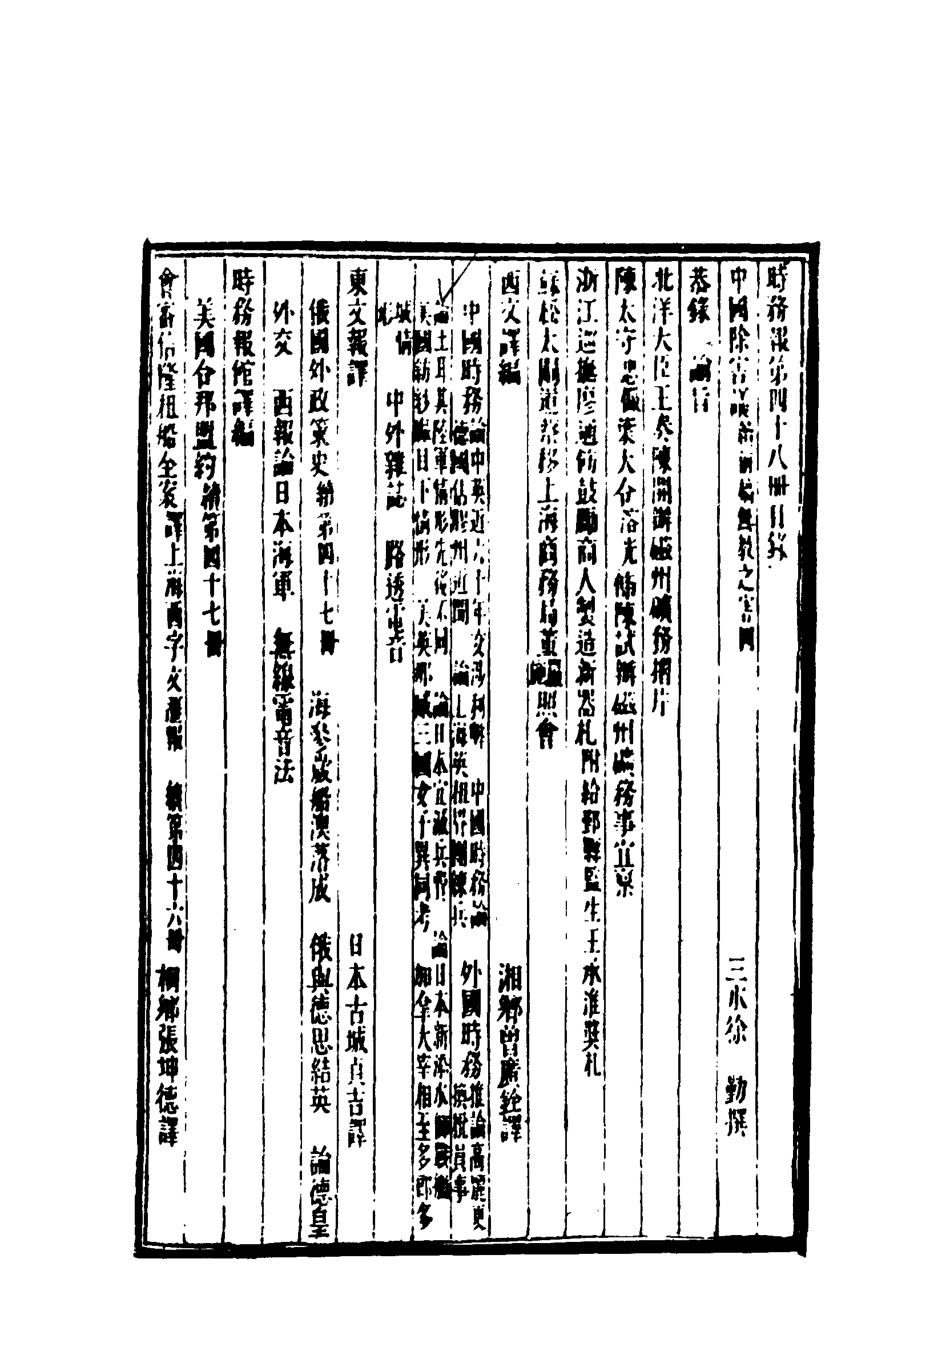 時務報第四十八冊目錄
中國除害議 無教之害四 三水徐 勤撰
恭錄 諭旨
北洋大臣王奏陳開辦磁州礦務摺片
陳太守忠儼葉大令落光條陳試辦磁州礦務事宜稟
浙江巡撫廖通飭鼓勵商人製造新器札 附給鄞縣監生王承淮獎札
蘇松太關道蔡移上海商務局董 照會
西文譯編 湘鄉曾廣銓譯
中國時務 論中英近六十年交涉 德國佔膠州近聞 論上海英租界團練兵 中國時務論 外國時務 推論高麗更換稅員事
論土耳其陸軍情形先後不同 論日本宜滅兵費 論日本新添水師戰艦
英國紡紗廠目下情形 三國女子異同考
城情形 中外雜誌 路透電音
東文報譯 日本古城貞吉譯
俄國外政策史 續第四十七冊 海參崴船澳落成 俄與德思結英 論德皇
外交 西報論日本海軍 無線電音法
時務報館譯編
美國合邦盟約 續第四十七冊
會審信隆租船全案 譯上海西字文滙報 續第四十六冊 桐鄉張坤德譯